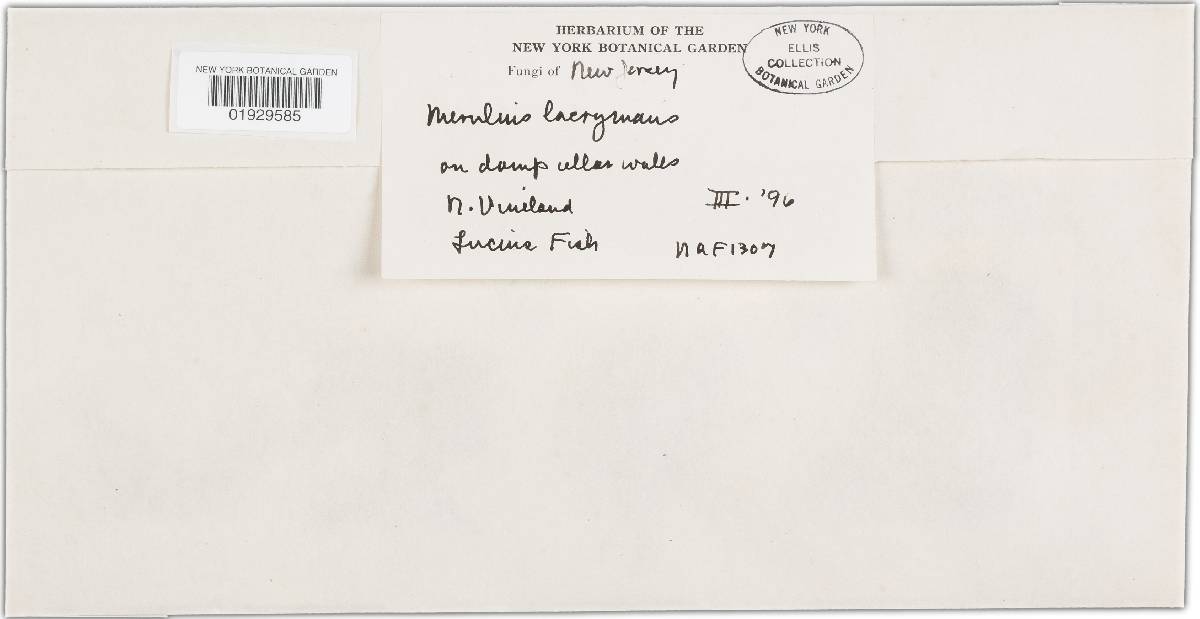 HERBARIUM OF THE
NEW YORK BOTANICAL GARDEN
Fungi of New Jersey
NEW YORK
ELLIS
COLLECTION
BOTANICAL GARDEN
NEW YORK BOTANICAL GARDEN
01929585
Merulius lacrymans
on damp cellar walls
N. Vineland III. '96
Lucius Fish NAF1307